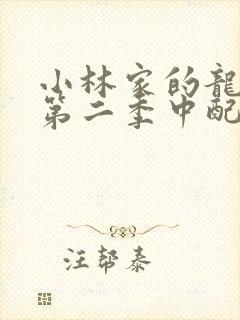 小林家的龍
第二季中配
汪帮泰